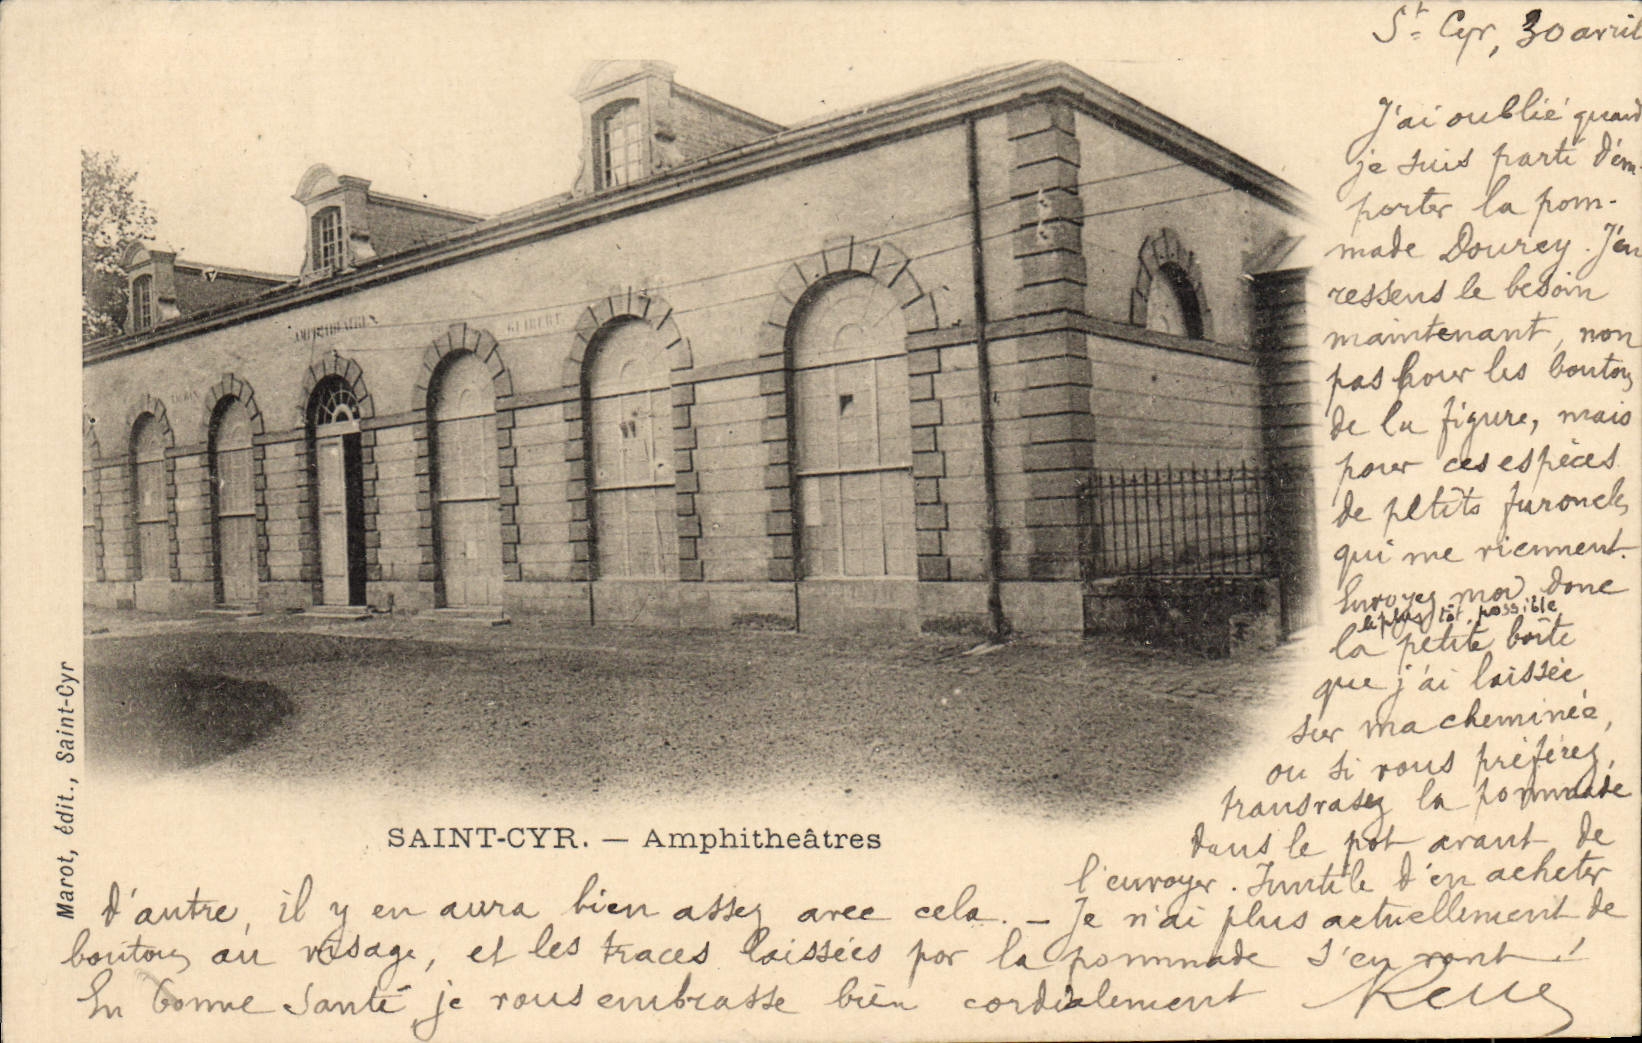 St Cyr, 30 avril
J'ai oublié quand
je suis parti d'em-
porter la pom-
made Dourey. J'en
ressens le besoin
maintenant, non
pas pour les boutons
de la figure, mais
pour ces espèces
de petits furoncles
qui me viennent.
Envoyez moi donc
le plus tôt possible
la petite boîte
que j'ai laissée
sur ma cheminée,
ou si vous préférez,
transvasez la pommade
dans le pot avant de
l'envoyer. Inutile d'en acheter
d'autre, il y en aura bien assez avec cela. — Je n'ai plus actuellement de
boutons au visage, et les traces laissées par la pommade s'en vont !
En bonne santé, je vous embrasse bien cordialement
AMPHITHEATRE
GUIBERT
SAINT-CYR. — Amphitheâtres
Marot, édit., Saint-Cyr